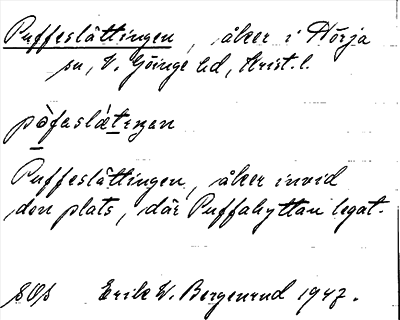 Puffeslättingen, åker i Nörja
sn, V. Göinge hd, Krist. l.
pòfaslætıŋan
Puffeslättingen, åker invid
den plats, där Puffahyttan legat.
SOS Erik W. Bergenrud 1947.